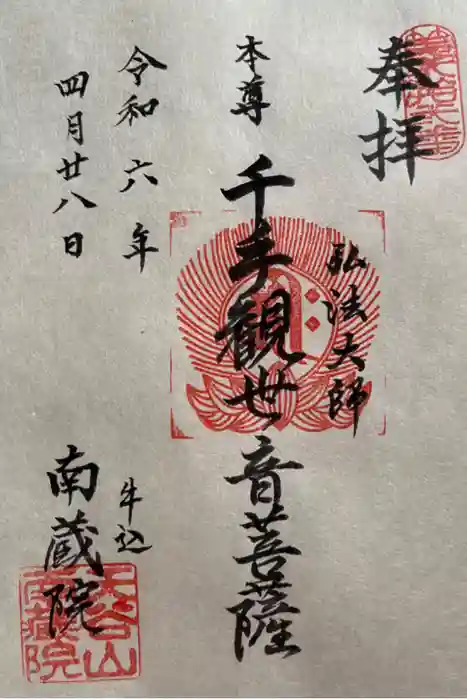 奉拝
弘法大師
本尊
千手観世音菩薩
令和六年
四月廿八日
牛込
南蔵院